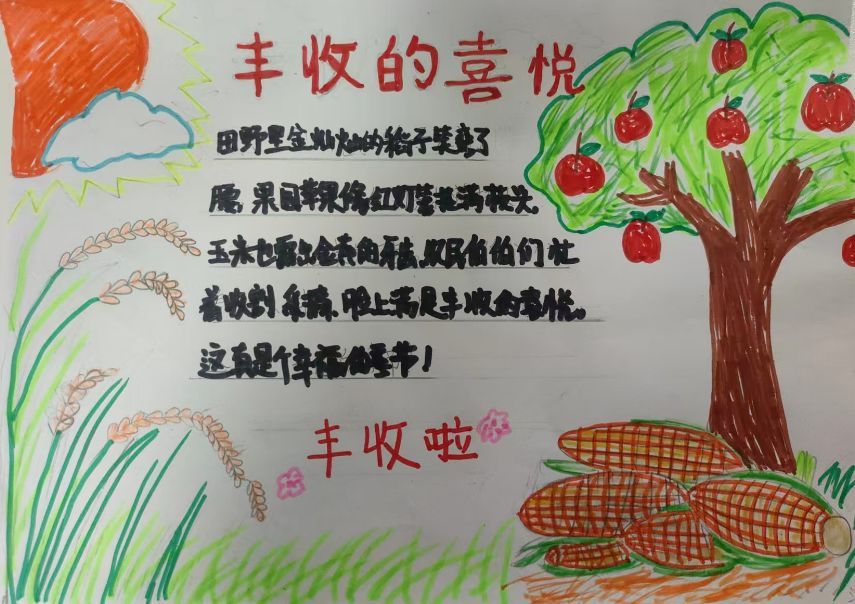 丰收的喜悦
田野里金灿灿的稻子笑弯了
腰,果园苹果像红灯笼挂满枝头,
玉米也露出金黄的牙齿,农民伯伯们忙
着收割采摘,脸上满是丰收的喜悦。
这真是个幸福的季节!
丰收啦